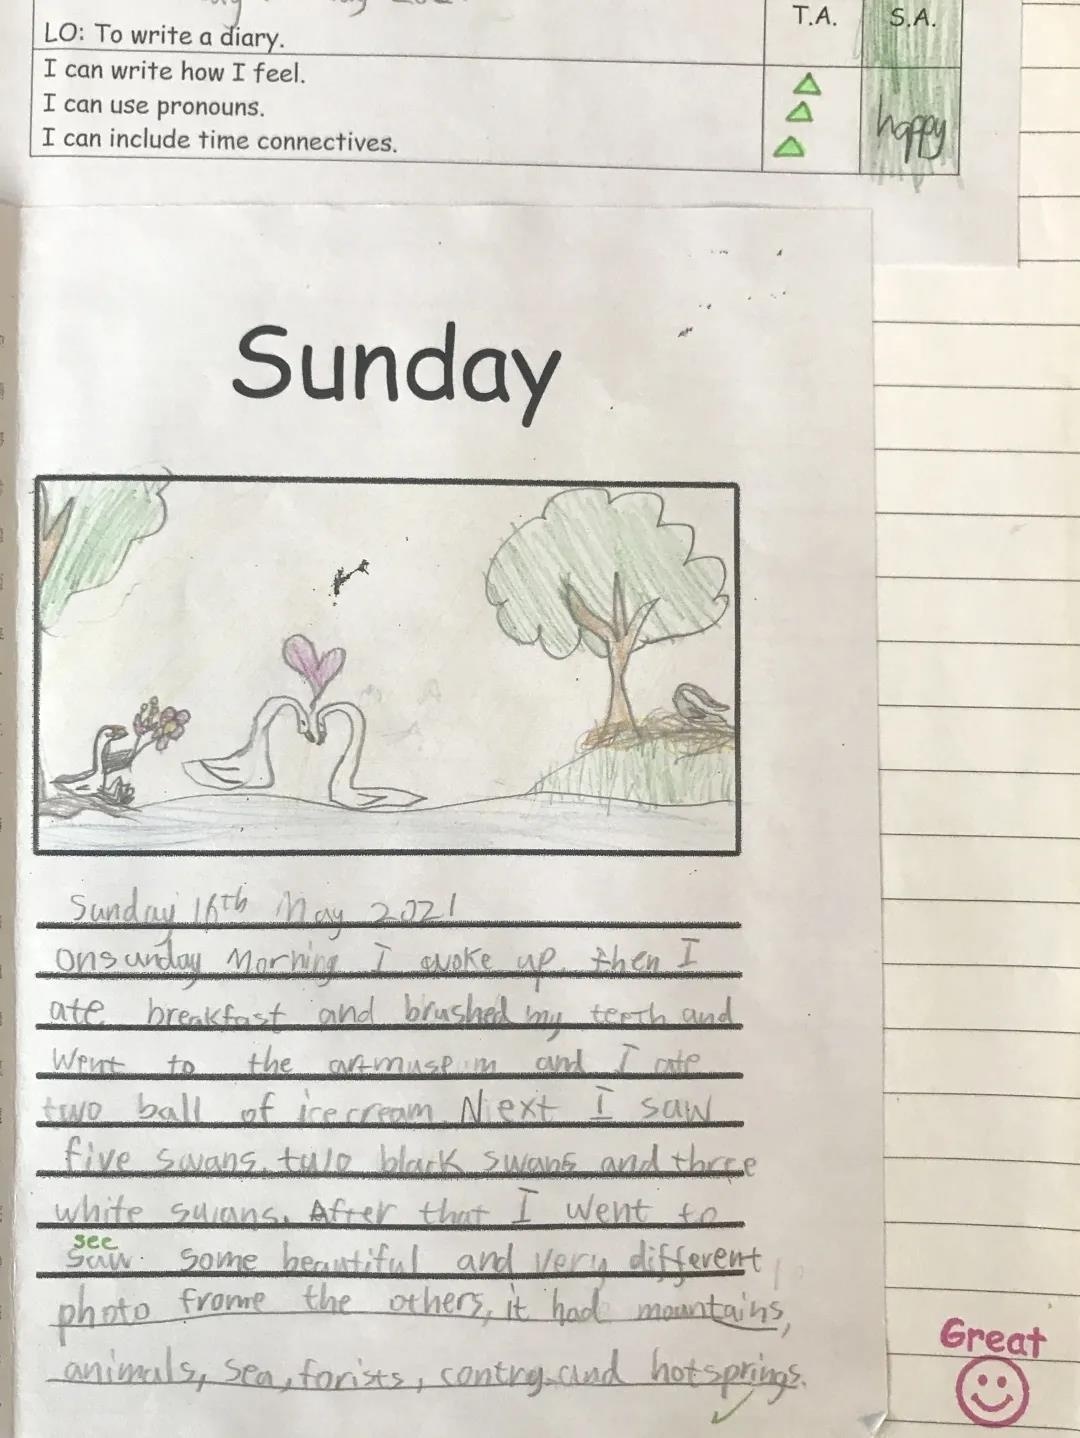 LO: To write a diary.
T.A. S.A.
I can write how I feel.
I can use pronouns.
I can include time connectives.
happy
Sunday
Sunday 16th May 2021
On sunday Morning I woke up, then I
ate breakfast and brushed my teeth and
Went to the artmuseum and I ate
two ball of icecream. Next I saw
five swans. two black swans and three
white swans. After that I went to
see
saw some beautiful and very different
photo frome the others, it had mountains,
animals, sea, forists, contry and hotsprings.
Great